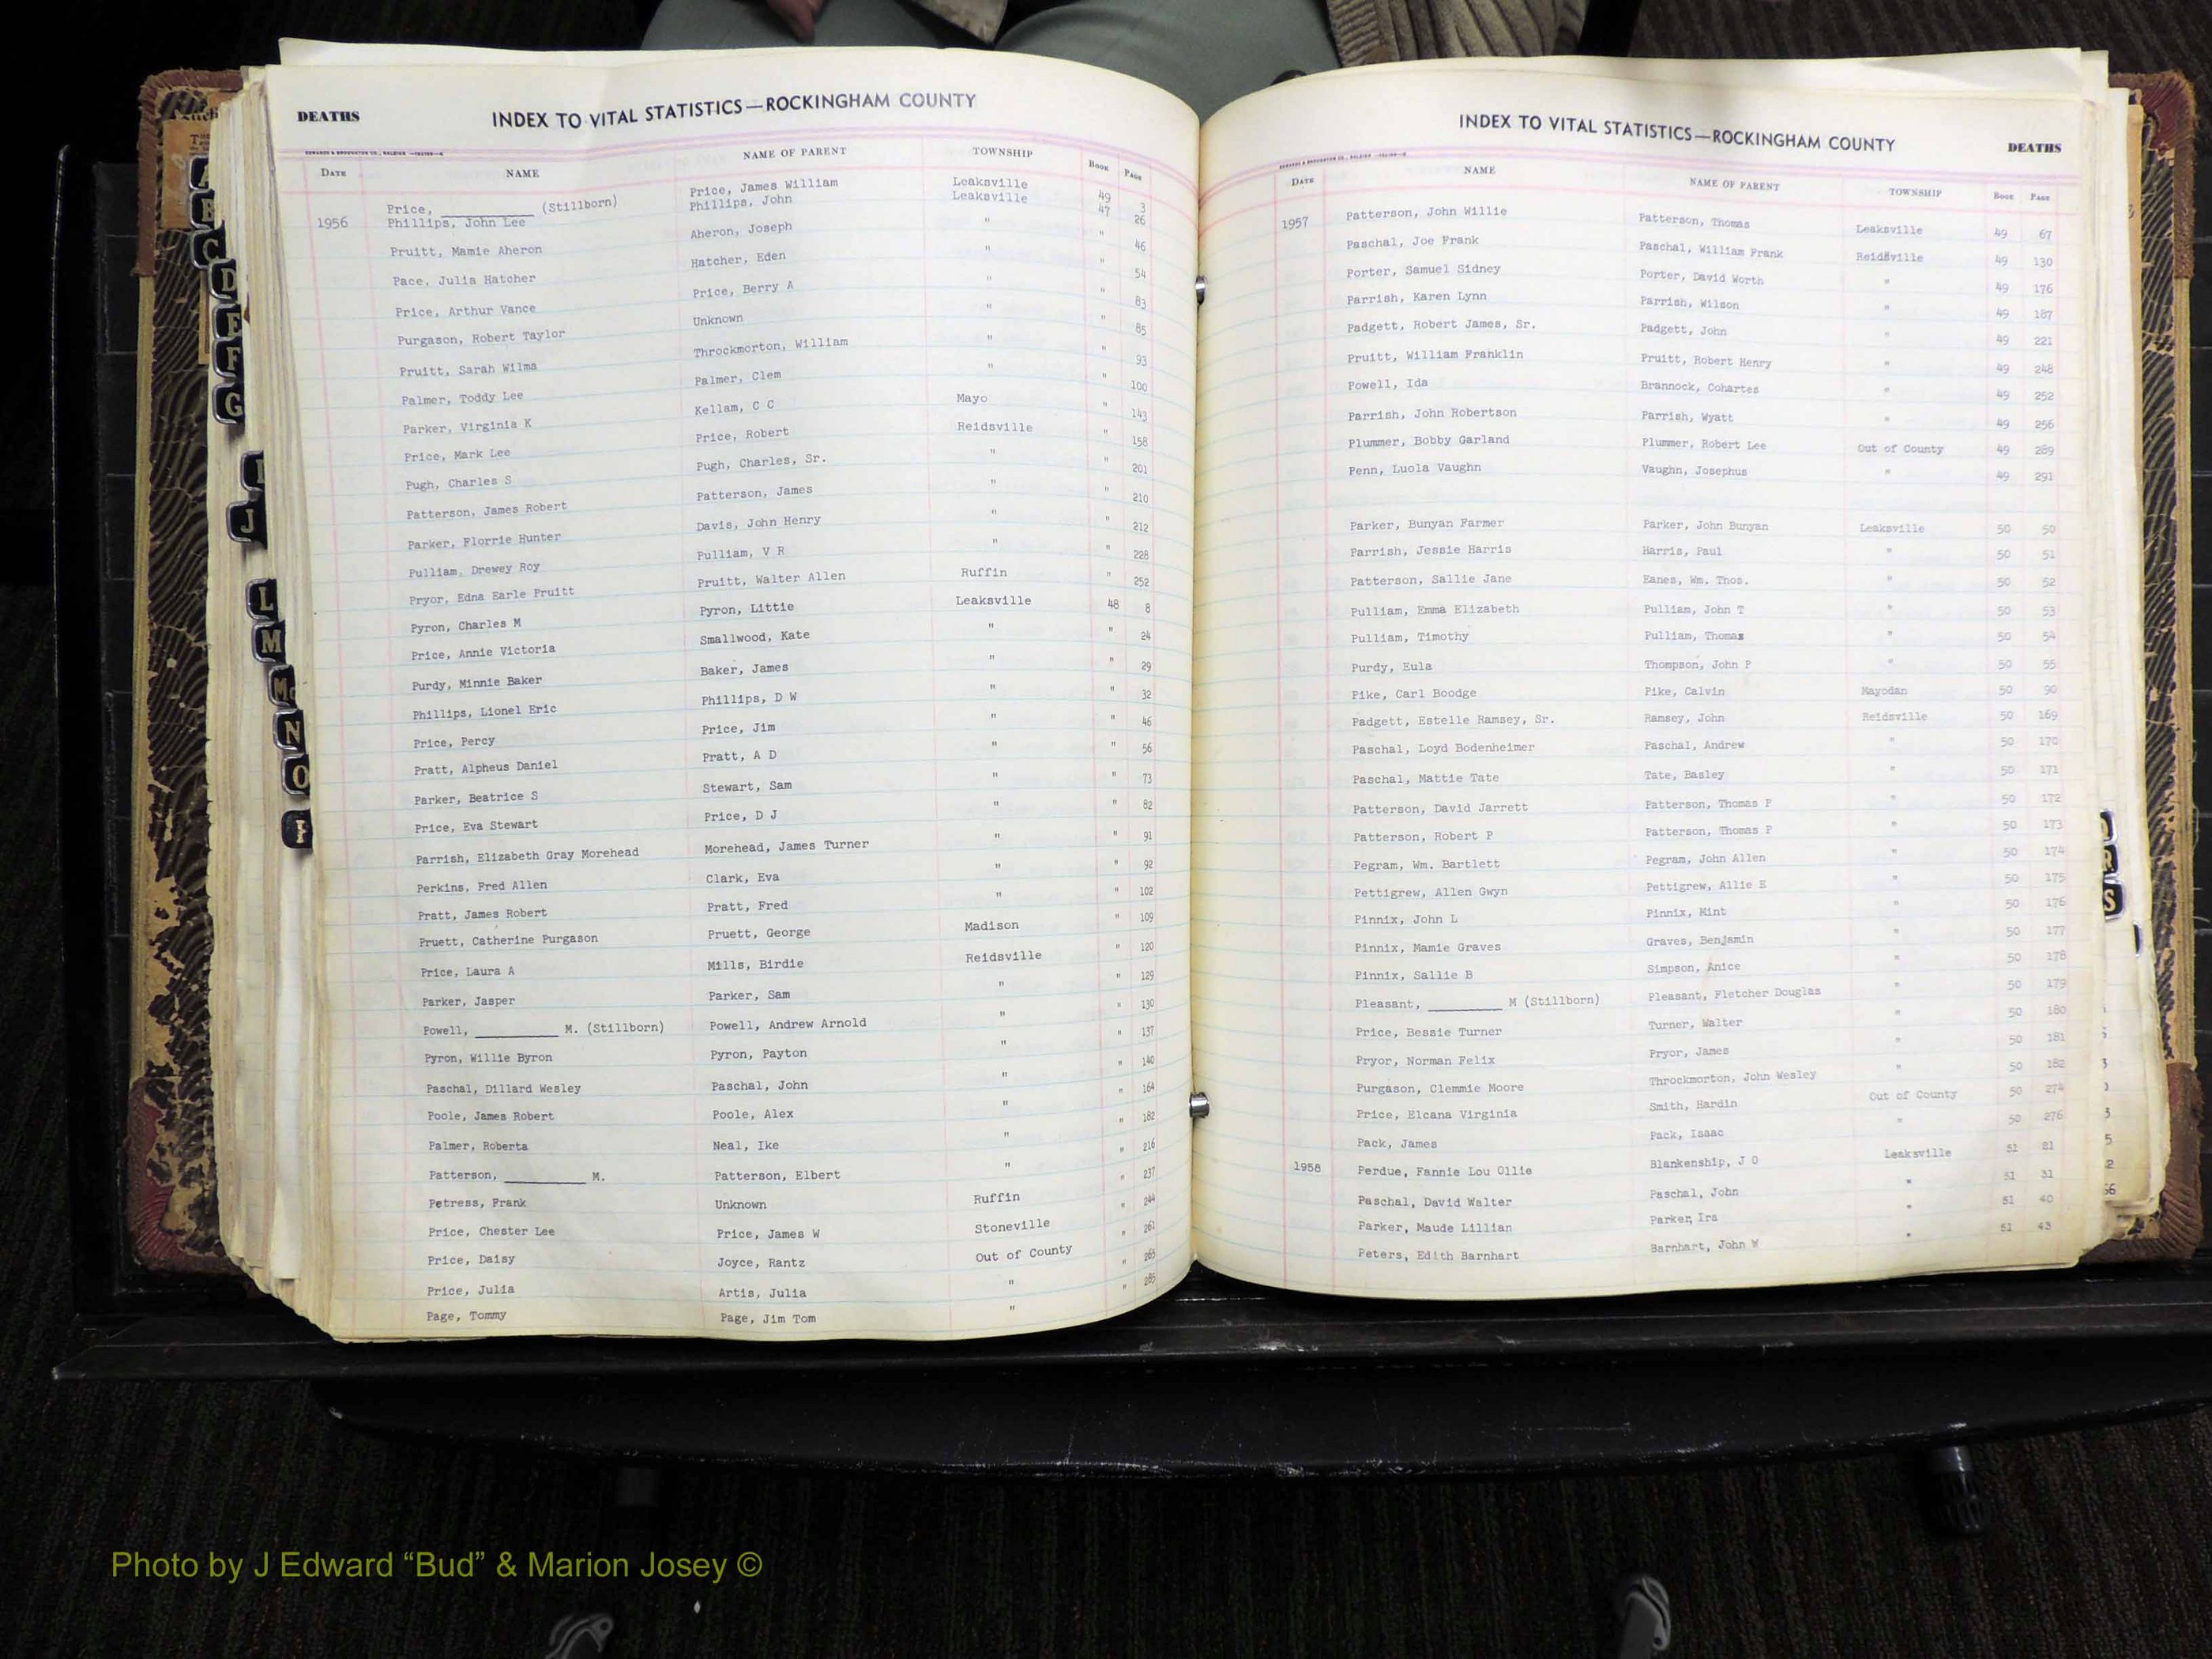 DEATHS INDEX TO VITAL STATISTICS—ROCKINGHAM COUNTY
EDWARDS & BROUGHTON CO., RALEIGH
DATE NAME NAME OF PARENT TOWNSHIP BOOK PAGE
Price, __________ (Stillborn) Price, James William Leaksville 49 3
1956 Phillips, John Lee Phillips, John Leaksville 47 26
Pruitt, Mamie Aheron Aheron, Joseph " " 46
Pace, Julia Hatcher Hatcher, Eden " " 54
Price, Arthur Vance Price, Berry A " " 83
Purgason, Robert Taylor Unknown " " 85
Pruitt, Sarah Wilma Throckmorton, William " " 93
Palmer, Toddy Lee Palmer, Clem " " 100
Parker, Virginia K Kellam, C C Mayo " 143
Price, Mark Lee Price, Robert Reidsville " 158
Pugh, Charles S Pugh, Charles, Sr. " " 201
Patterson, James Robert Patterson, James " " 210
Parker, Florrie Hunter Davis, John Henry " " 212
Pulliam, Drewey Roy Pulliam, V R " " 228
Pryor, Edna Earle Pruitt Pruitt, Walter Allen Ruffin " 252
Pyron, Charles M Pyron, Littie Leaksville 48 8
Price, Annie Victoria Smallwood, Kate " " 24
Purdy, Minnie Baker Baker, James " " 29
Phillips, Lionel Eric Phillips, D W " " 32
Price, Percy Price, Jim " " 46
Pratt, Alpheus Daniel Pratt, A D " " 56
Parker, Beatrice S Stewart, Sam " " 73
Price, Eva Stewart Price, D J " " 82
Parrish, Elizabeth Gray Morehead Morehead, James Turner " " 91
Perkins, Fred Allen Clark, Eva " " 92
Pratt, James Robert Pratt, Fred " " 102
Pruett, Catherine Purgason Pruett, George Madison " 109
Price, Laura A Mills, Birdie Reidsville " 120
Parker, Jasper Parker, Sam " " 129
Powell, __________ M. (Stillborn) Powell, Andrew Arnold " " 130
Pyron, Willie Byron Pyron, Payton " " 137
Paschal, Dillard Wesley Paschal, John " " 140
Poole, James Robert Poole, Alex " " 164
Palmer, Roberta Neal, Ike " " 182
Patterson, __________ M. Patterson, Elbert " " 216
Petress, Frank Unknown Ruffin " 237
Price, Chester Lee Price, James W Stoneville " 244
Price, Daisy Joyce, Rantz Out of County " 261
Price, Julia Artis, Julia " " 265
Page, Tommy Page, Jim Tom " " 285
INDEX TO VITAL STATISTICS—ROCKINGHAM COUNTY DEATHS
DATE NAME NAME OF PARENT TOWNSHIP BOOK PAGE
1957 Patterson, John Willie Patterson, Thomas Leaksville 49 67
Paschal, Joe Frank Paschal, William Frank Reidsville 49 130
Porter, Samuel Sidney Porter, David Worth " 49 176
Parrish, Karen Lynn Parrish, Wilson " 49 187
Padgett, Robert James, Sr. Padgett, John " 49 221
Pruitt, William Franklin Pruitt, Robert Henry " 49 248
Powell, Ida Brannock, Cohartes " 49 252
Parrish, John Robertson Parrish, Wyatt " 49 256
Plummer, Bobby Garland Plummer, Robert Lee Out of County 49 289
Penn, Luola Vaughn Vaughn, Josephus " 49 291
Parker, Bunyan Farmer Parker, John Bunyan Leaksville 50 50
Parrish, Jessie Harris Harris, Paul " 50 51
Patterson, Sallie Jane Eanes, Wm. Thos. " 50 52
Pulliam, Emma Elizabeth Pulliam, John T " 50 53
Pulliam, Timothy Pulliam, Thomas " 50 54
Purdy, Eula Thompson, John P " 50 55
Pike, Carl Boodge Pike, Calvin Mayodan 50 90
Padgett, Estelle Ramsey, Sr. Ramsey, John Reidsville 50 169
Paschal, Loyd Bodenheimer Paschal, Andrew " 50 170
Paschal, Mattie Tate Tate, Basley " 50 171
Patterson, David Jarrett Patterson, Thomas P " 50 172
Patterson, Robert P Patterson, Thomas P " 50 173
Pegram, Wm. Bartlett Pegram, John Allen " 50 174
Pettigrew, Allen Gwyn Pettigrew, Allie E " 50 175
Pinnix, John L Pinnix, Mint " 50 176
Pinnix, Mamie Graves Graves, Benjamin " 50 177
Pinnix, Sallie B Simpson, Anice " 50 178
Pleasant, __________ M (Stillborn) Pleasant, Fletcher Douglas " 50 179
Price, Bessie Turner Turner, Walter " 50 180
Pryor, Norman Felix Pryor, James " 50 181
Purgason, Clemmie Moore Throckmorton, John Wesley " 50 182
Price, Elcana Virginia Smith, Hardin Out of County 50 274
Pack, James Pack, Isaac " 50 276
1958 Perdue, Fannie Lou Ollie Blankenship, J O Leaksville 51 21
Paschal, David Walter Paschal, John " 51 31
Parker, Maude Lillian Parker, Ira " 51 40
Peters, Edith Barnhart Barnhart, John W " 51 43
A
B
C
D
E
F
G
I
J
L
M
Mc
N
O
P
R
S
Photo by J Edward “Bud” & Marion Josey ©